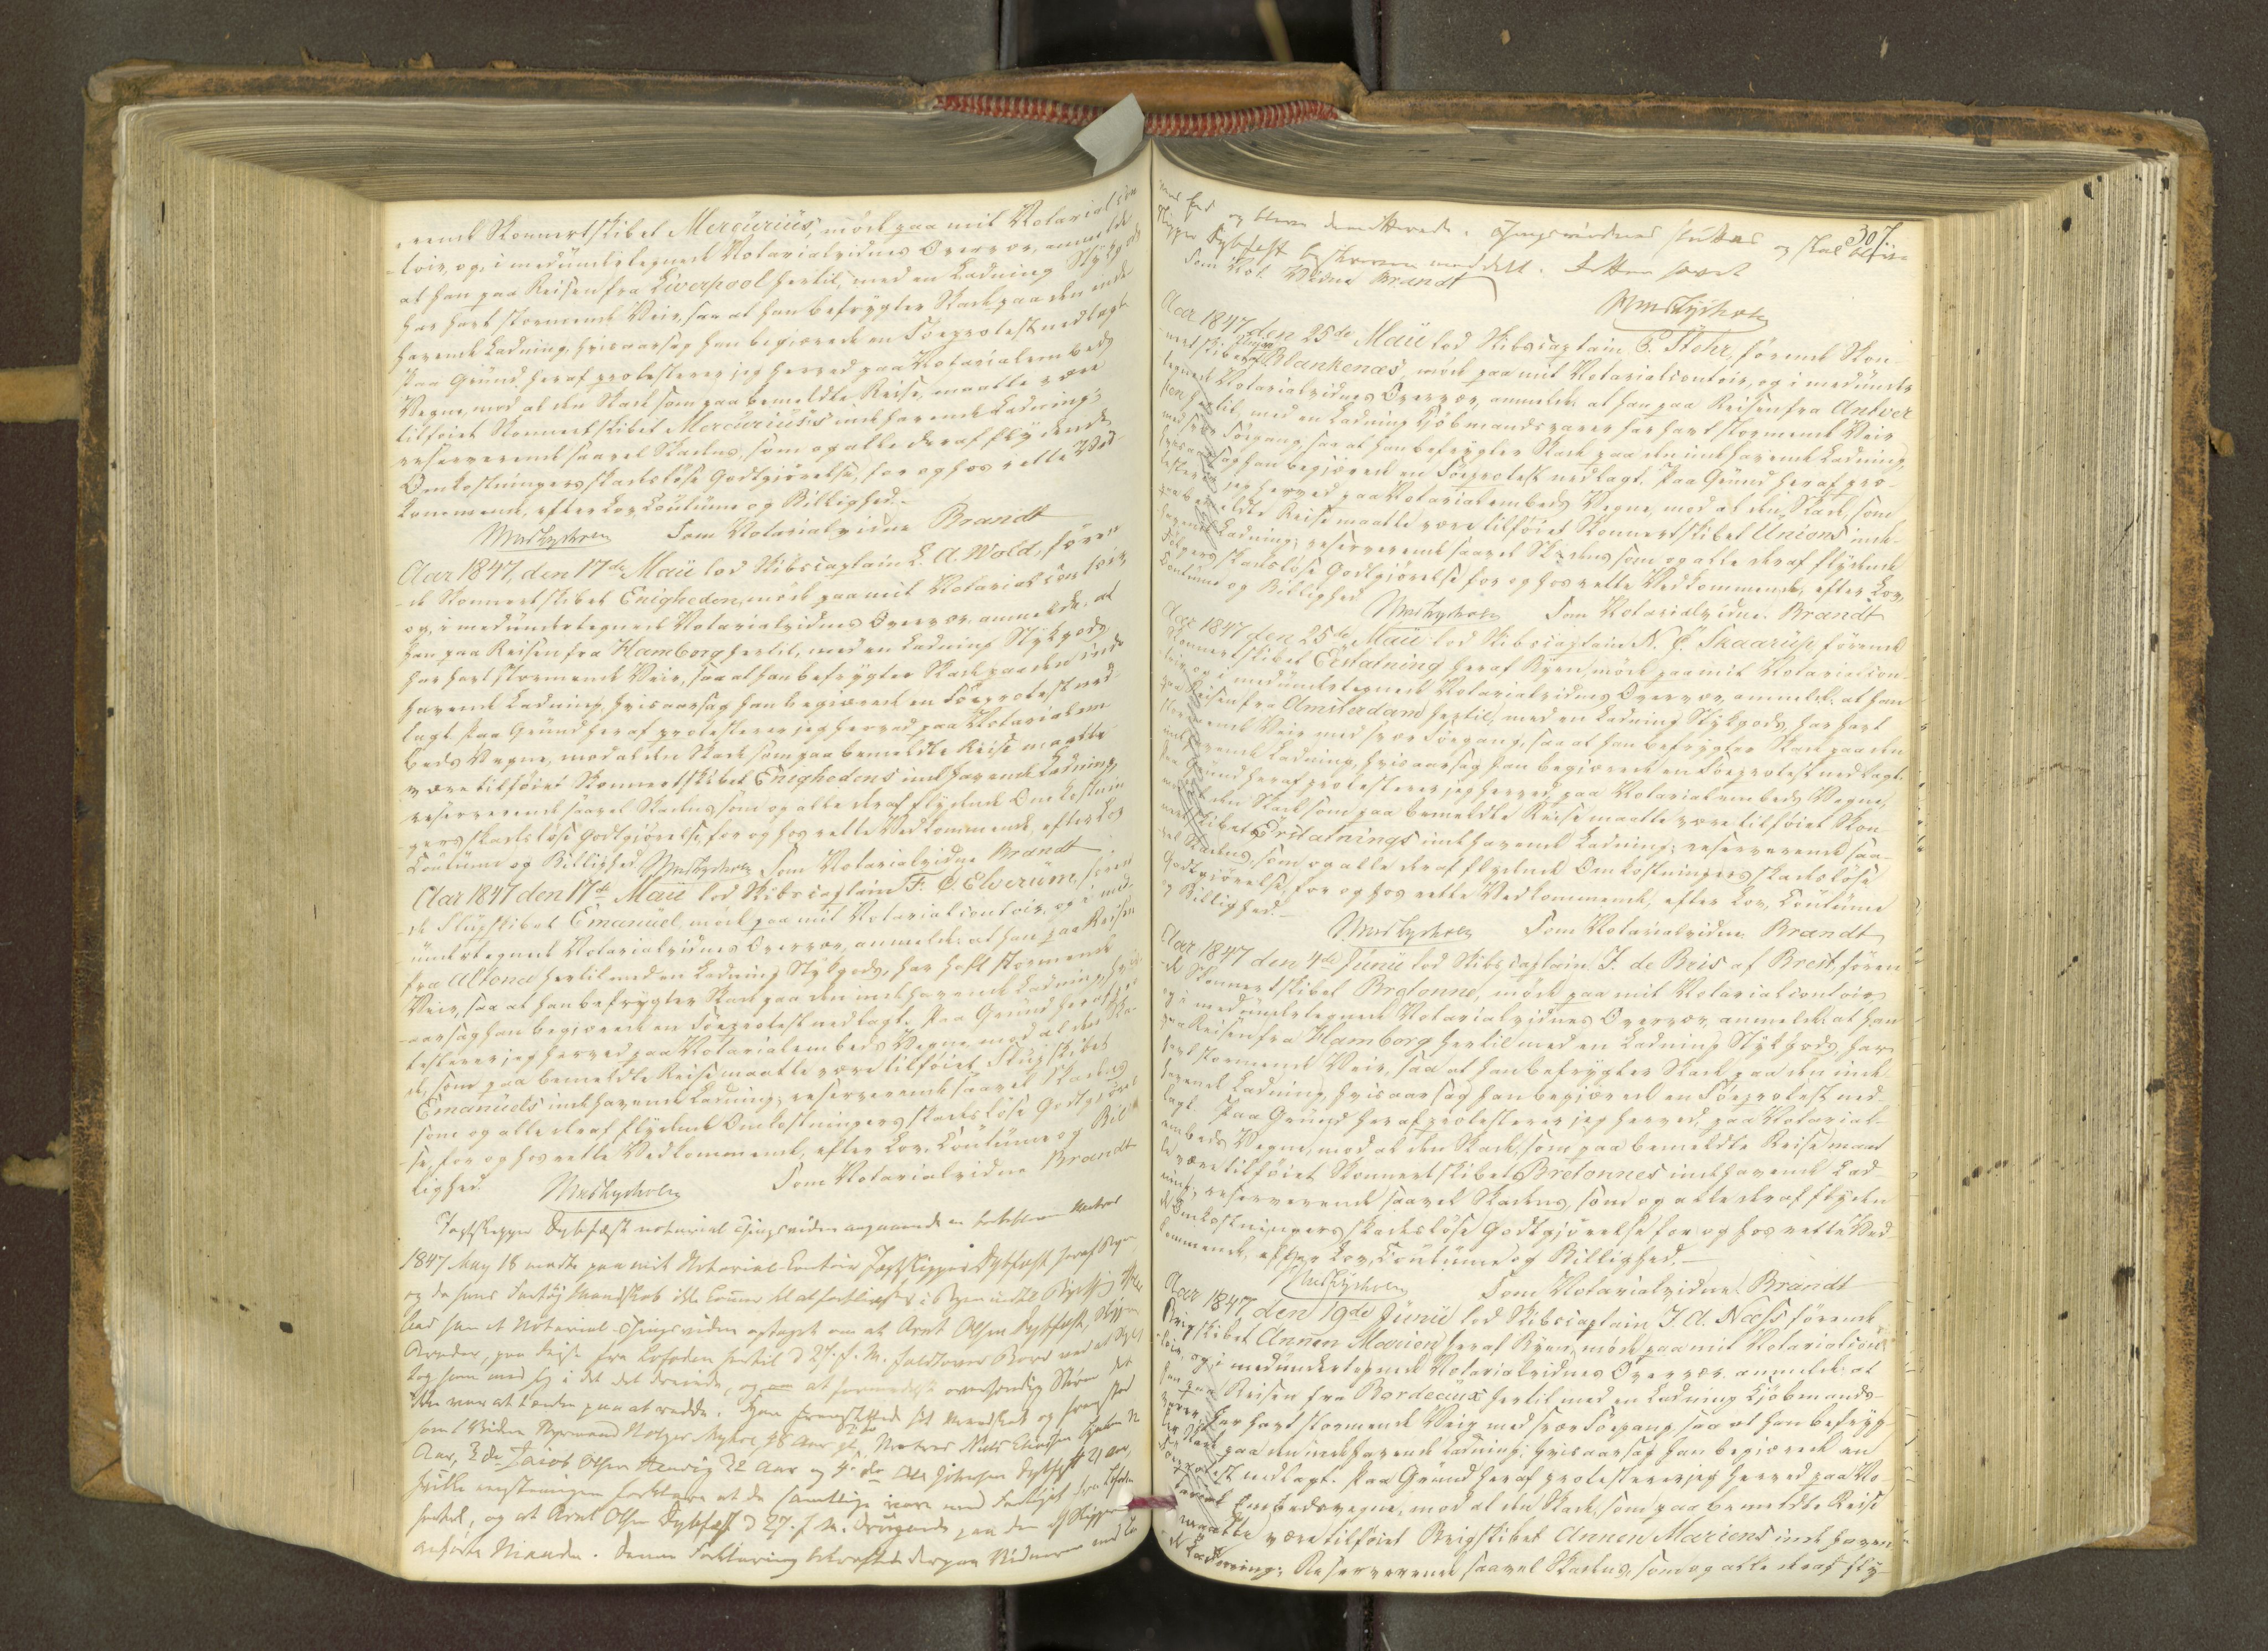 erende Skonnertskibet Mercürius, møde paa mit Notarialcon
toir, og, i medündertegnede Notarialvidnes Overvær, anmelde
at han paa Reisen fra Liverpool hertil, med en Ladning Stykgods
har havt stormende Veir, saa at han befrygter Skade paa den inde
havende Ladning, hvisaarsag han begjærede en Söeprotest nedlagt.
Paa Gründ heraf protesterer jeg herved paa Notarialembeds
Vegne, mod al den Skade som paa bemeldte Reise maatte være
tilföiet Skonnertskibet Mercürius's indehavende Ladning;
reserverende saavel Skadens, som og alle deraf flydende
Omkostningers skadeslöse Godtgjörelse, for og hos rette Ved
kommende, efter Lov, Coutüme og Billighed.
Som Notarialvidne Brandt
Aar 1847, den 17de Maii lod Skibscaptain L. A. Wold, füren
de Skonnertskibet Enigheden, møde paa mit Notarialcontoir,
og, i medündertegnede Notarialvidnes Overvær, anmelde: at
han paa Reisen fra Hamborg hertil, med en Ladning Stykgods,
har havt stormende Veir, saa at han befrygter Skade paa den inde
havende Ladning, hvisaarsag han begjærede en Söeprotest ned
lagt. Paa Gründ heraf protesterer jeg herved paa Notarialem
beds Vegne, mod al den Skade som paa bemeldte Reise maatte
være tilföiet Skonnertskibet Enighedens indehavende Ladning,
reserverende saavel Skadens, som og alle deraf flydende Omkostnin
gers skadeslöse Godtgjörelse, for og hos rette Vedkommende, efter Lov
Coutüme og Billighed. Som Notarialvidne Brandt
Aar 1847 den 17de Maii lod Skibscaptain F. C. Elverüm, fören
de Slüpskibet Emanüel, møde paa mit Notarialcontoir, og i med
ündertegnede Notarialvidnes Overvær, anmelde: at han paa Reisen
fra Altona hertil med en Ladning Stykgods, har havt stormende
Veir, saa at han befrygter Skade paa den indehavende Ladning, hvis
aarsag han begjærede en Söeprotest nedlagt. Paa Gründ heraf pro
testerer jeg herved paa Notarialembeds Vegne, mod al den Ska
de, som paa bemeldte Reise maatte være tilföiet Slüpskibet
Emanüels indehavende Ladning; reserverende saavel Skadens
som og alle deraf flydende Omkostningers skadeslöse Godtgjörel
se, for og hos rette Vedkommende, efter Lov, Coutüme og Bil
lighed. Som Notarialvidne Brandt
Jagtskipper Dybfest notarial Tingsvidne angaaende en
1847 May 18 mødte paa mit Notarial-Contoir Jagtskipper Dybfest heraf Byen
og da hans Fartøj Mandskab ikke
han et Notarial-Tingsvidne optaget om at Arnt Olsen Dybfest, Skipperens
Broder, paa Reise fra Lofoden hertil d 27. f. M. faldt over Bord
og om at formedelst overhændig Storm det
ikke var at tænke paa at redde. Han fremstillede sit Mandskab og
som 1 Vidne Styrmand Holger 48 Aar gl. Matros Niels
Aar, 3de Jacob Olsen 22 Aar og 4de Ole Johnsen Dybfest 21 Aar,
hvilke eenstemmigen forklare at de samtlige vare med Fartøjet fra Lofoden
hertil, og at Arnt Olsen Dybfest d 27. f. M. druknede paa den af Skipperen
anførte Maade. Denne Forklaring bekræftede derpaa Vidnerne med
307.
Eed og bleve demitterede. Tingsvidnet sluttes og skal blive
Skipper Dybfest beskreven meddeelt.
Som Not. Vidne Brandt
Aar 1847, den 25de Maii lod Skibscaptain C. Stehr, förende Skon
nertskibet Union af Blankenæs, møde paa mit Notarialcontoir, og i medünder
tegnede Notarialvidnes Overvær, anmelde: at han paa Reisen fra Antver
pen hertil, med en Ladning Kjöbmandsvarer har havt stormende Veir
med svær Söegang, saa at han befrygter Skade paa den indehavende Ladning,
hvisaarsag han begjærede en Söeprotest nedlagt. Paa Gründ heraf pro
testerer jeg herved paa Notarialembeds Vegne, mod al den Skade, som
paa bemeldte Reise maatte være tilföiet Skonnertskibet Unions inde
havende Ladning; reserverende saavel Skadens som og alle deraf flydende
Fölgers skadeslöse Godtgjörelse for og hos rette Vedkommende, efter Lov,
Coutüme og Billighed. Som Notarialvidne Brandt
Aar 1847 den 25de Maii lod Skibscaptain N. C. Skaarüp, förende
Skonnertskibet Erstatning heraf Byen, møde paa mit Notarialcon
toir, og i medündertegnede Notarialvidnes Overvær, anmelde: at han
paa Reisen fra Amsterdam hertil, med en Ladning Stykgods, har havt
stormende Veir med svær Söegang, saa at han befrygter Skade paa den
indehavende Ladning, hvisaarsag han begjærede en Söeprotest nedlagt.
Paa Gründ heraf protesterer jeg herved paa Notarialembeds Vegne,
mod al den Skade som paa bemeldte Reise maatte være tilföiet Skon
nertskibet Erstatnings indehavende Ladning; reserverende saa
vel Skadens, som og alle deraf flydende Omkostningers skadeslöse
Godtgjörelse, for og hos rette Vedkommende, efter Lov, Coutüme
og Billighed.
Som Notarialvidne Brandt
Aar 1847 den 4de Jünii lod Skibscaptain J. de Bris af Brest, fören
de Skonnertskibet Bretonne, møde paa mit Notarialcontoir,
og i medündertegnede Notarialvidnes Overvær, anmelde: at han
paa Reisen fra Hamborg hertil med en Ladning Stykgods, har
havt stormende Veir, saa at han befrygter Skade paa den inde
havende Ladning, hvisaarsag han begjærede en Söeprotest ned
lagt. Paa Gründ heraf protesterer jeg herved, paa Notarial
embeds Vegne, mod al den Skade, som paa bemeldte Reise maat
te være tilföiet Skonnertskibet Bretonnes indehavende Lad
ning; reserverende saavel Skadens, som og alle deraf flyden
de Omkostningers skadeslöse Godtgjörelse for og hos rette Ved
kommende, efter Lov, Coutüme og Billighed.
Som Notarialvidne Brandt
Aar 1847 den 19de Jünii lod Skibscaptain J. A. Næss förende
Brigskibet Annen Marien heraf Byen, møde paa mit Notarialcon
toir, og, i medündertegnede Notarialvidnes Overvær, anmelde: at
han paa Reisen fra Bordeaüx hertil med en Ladning Kjöbmands
varer, har havt stormende Veir med svær Söegang, saa at han befryg
ter Skade paa den indehavende Ladning; hvisaarsag han begjærede en
Söeprotest nedlagt. Paa Gründ heraf protesterer jeg herved paa No
tarial Embedsvegne, mod al den Skade, som paa bemeldte Reise
maatte være tilföiet Brigskibet Annen Mariens indehaven
de Ladning; Reserverende saavel Skadens, som og alle deraf fly